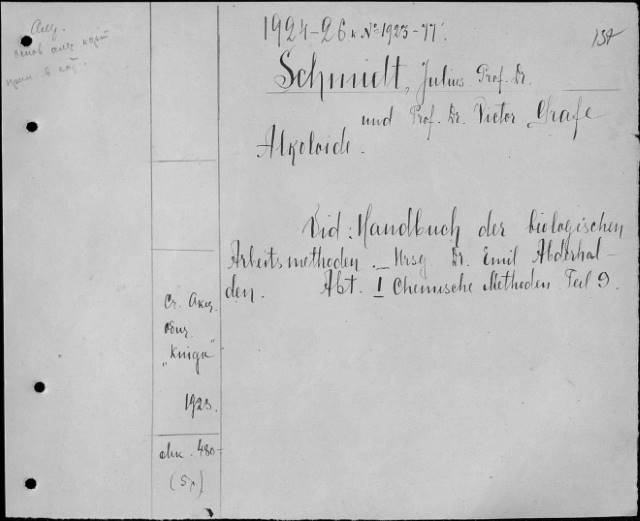 1924-26 к № 1923-77.
Schmidt, Julius Prof. Dr.
und Prof. Dr. Victor Grafe
Alkoloide.
Vid: Handbuch der biologischen
Arbeitsmethoden. — Hrsg Dr. Emil Abderhal-
den. Abt. I Chemische Methoden Teil 9.
Ст. Акц.
"Kniga"
1923.
480-
(5p)